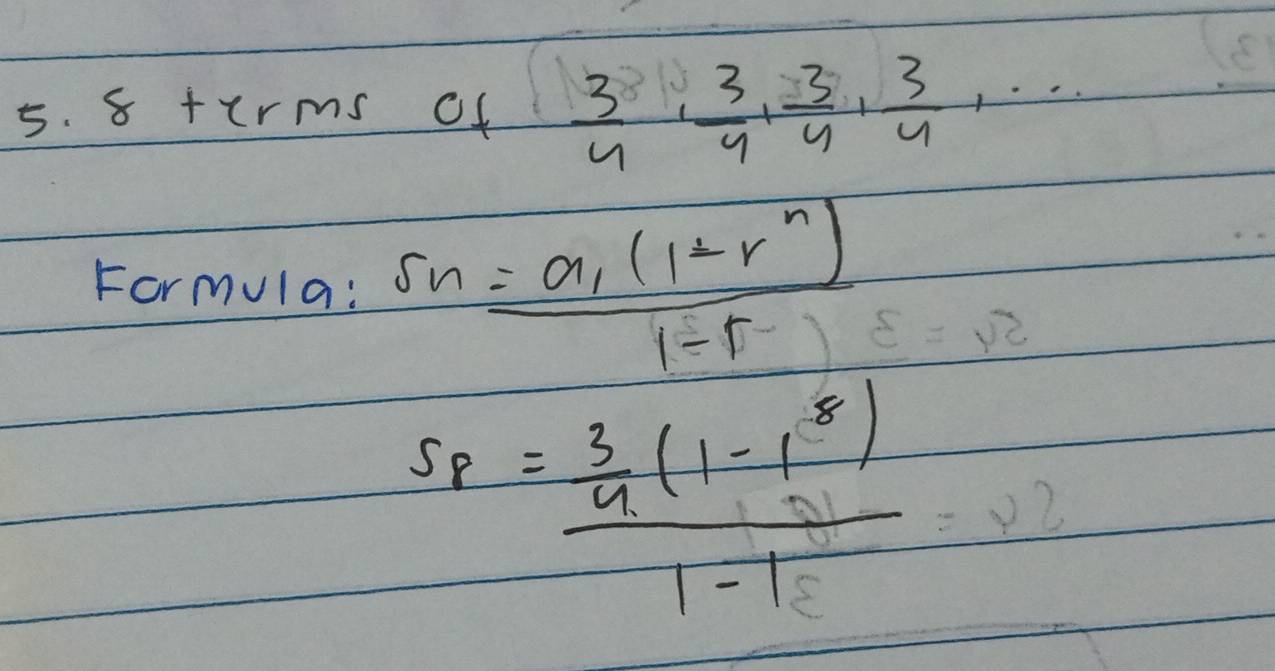 5. 8 terms of 3/4, 3/4, 3/4, 3/4, ...
Formula: Sn = a₁(1-rⁿ)
1-r
S₈ = 3/4 (1-1⁸)
1-1